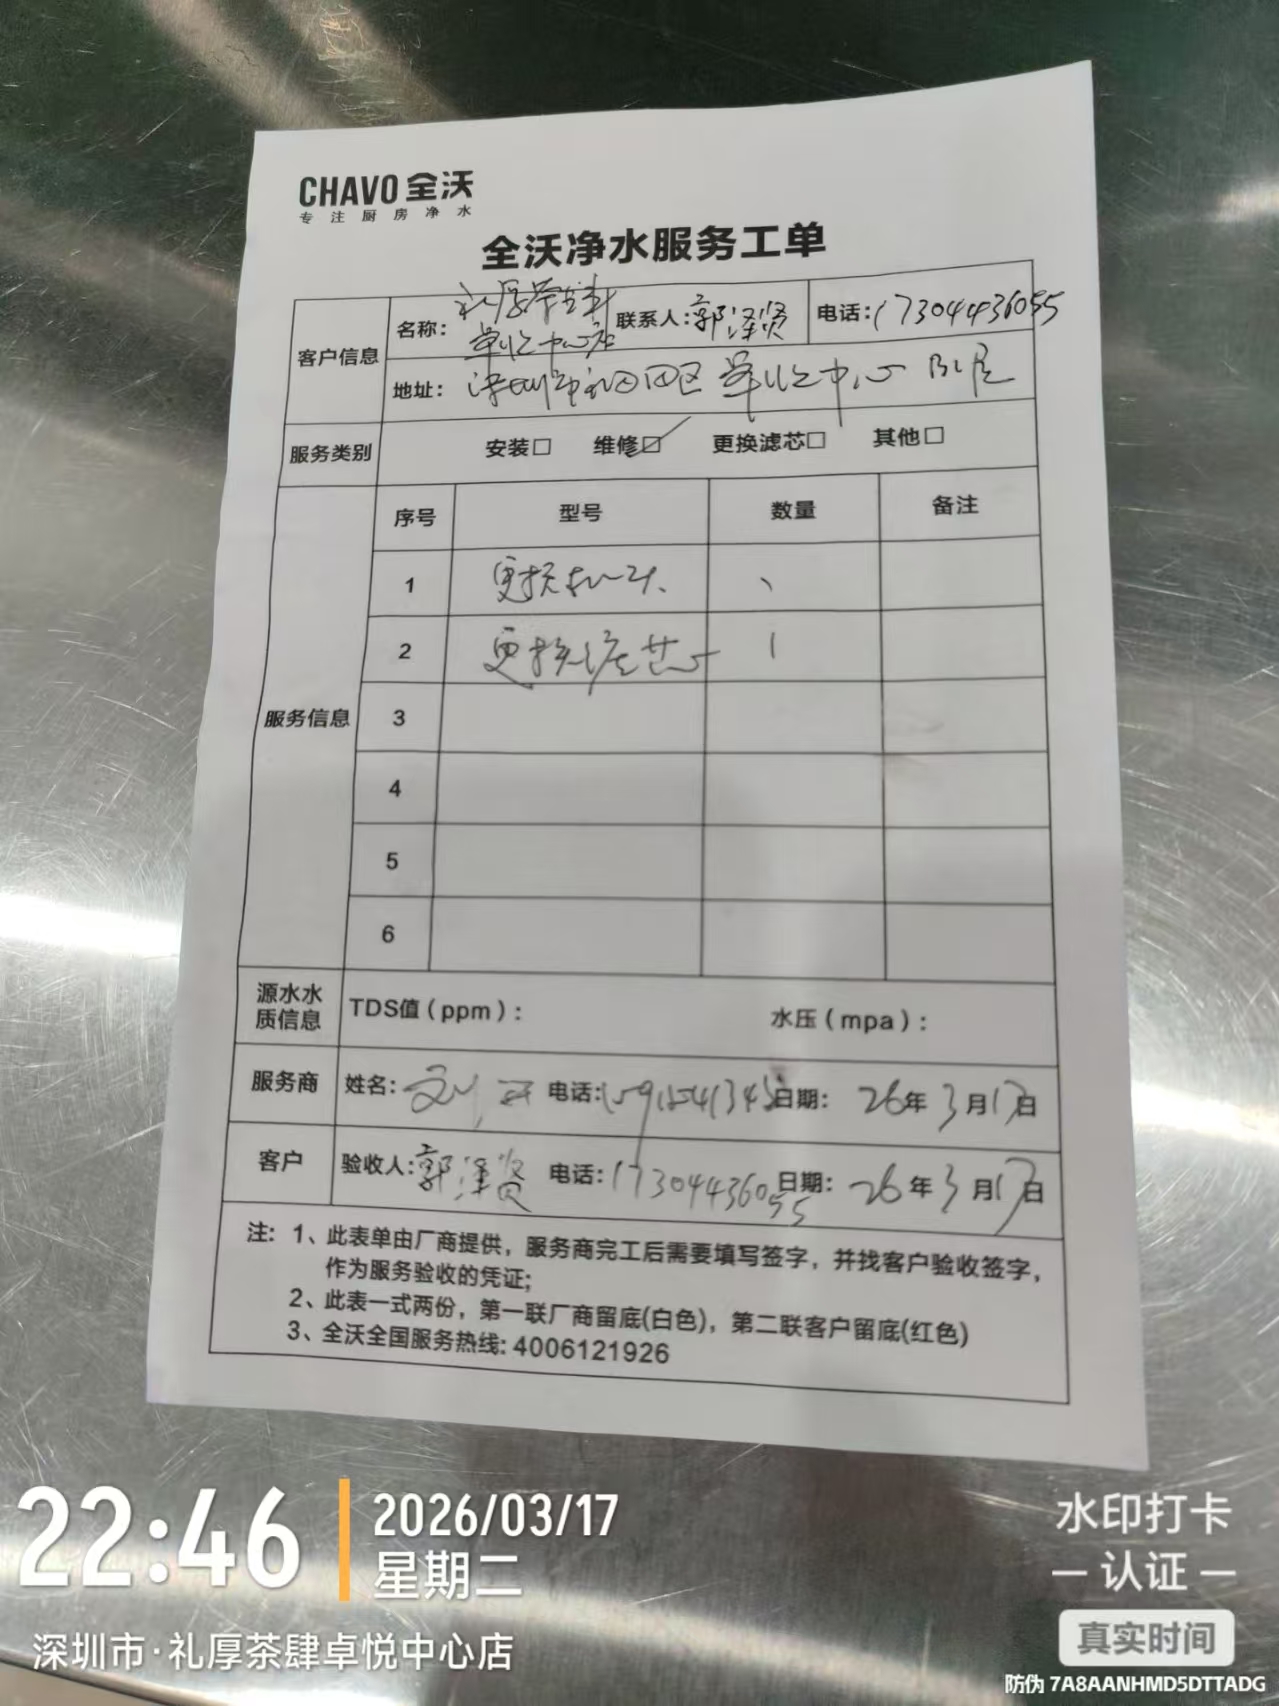 CHAVO 全沃
专注厨房净水
全沃净水服务工单
客户信息
名称: 礼厚茶肆卓悦中心店
联系人: 郭泽贤
电话: 17304436055
地址: 深圳市福田区卓悦中心 B1层
服务类别 安装□ 维修☑ 更换滤芯□ 其他□
服务信息
序号 型号 数量 备注
1 更换机头 、
2 更换滤芯 1
3
4
5
6
源水水质信息 TDS值(ppm): 水压(mpa):
服务商 姓名: 刘 电话: 日期: 26年3月17日
客户 验收人: 郭泽贤 电话: 17304436055 日期: 26年3月17日
注: 1、此表单由厂商提供，服务商完工后需要填写签字，并找客户验收签字，
作为服务验收的凭证;
2、此表一式两份，第一联厂商留底(白色)，第二联客户留底(红色)
3、全沃全国服务热线: 4006121926
22:46
2026/03/17
星期二
深圳市·礼厚茶肆卓悦中心店
水印打卡
认证
真实时间
防伪 7A8AANHMD5DTTADG